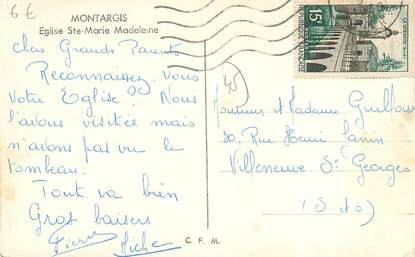 6 €
MONTARGIS
Eglise Ste-Marie Madeleine
Chers Grands Parents
Reconnaissez-vous
votre Eglise? Nous
l'avons visitée mais
n'avons pas vu le
tombeau.
Tout va bien
Gros baisers
Pierre
15F
45
Monsieur et Madame
30, Rue Henri
Villeneuve St Georges
(S.&O)
C. F. M.